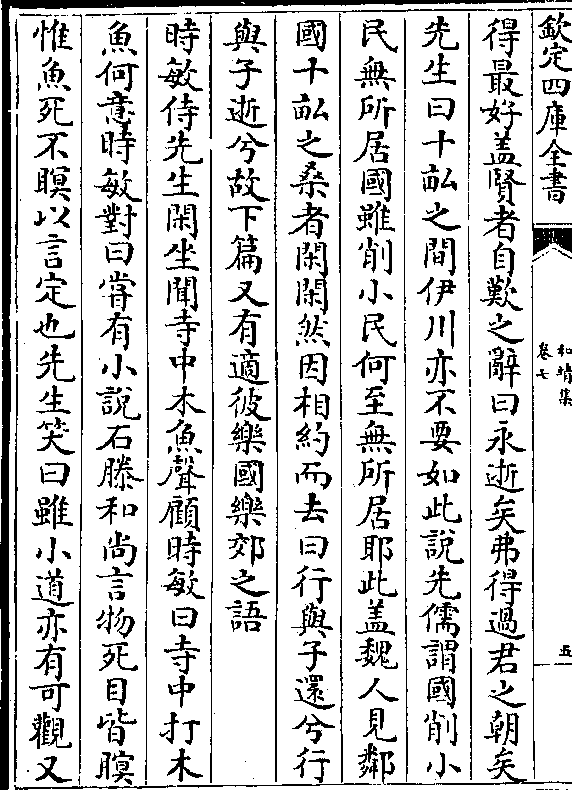 欽定四庫全書
和靖集
卷七
五
得最好盖賢者自歎之辭曰永逝矣弗得過君之朝矣
先生曰十畝之間伊川亦不要如此說先儒謂國削小
民無所居國雖削小民何至無所居耶此盖魏人見鄰
國十畝之桑者閑閑然因相約而去曰行與子還兮行
與子逝兮故下篇又有適彼樂國樂郊之語
時敏侍先生閑坐聞寺中木魚聲顧時敏曰寺中打木
魚何意時敏對曰嘗有小說石滕和尚言物死目皆瞑
惟魚死不瞑以言定也先生笑曰雖小道亦有可觀又